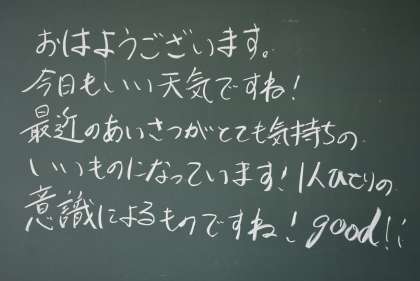 おはようございます。
今日もいい天気ですね!
最近のあいさつがとても気持ちの
いいものになっています!1人ひとりの
意識によるものですね!good!!